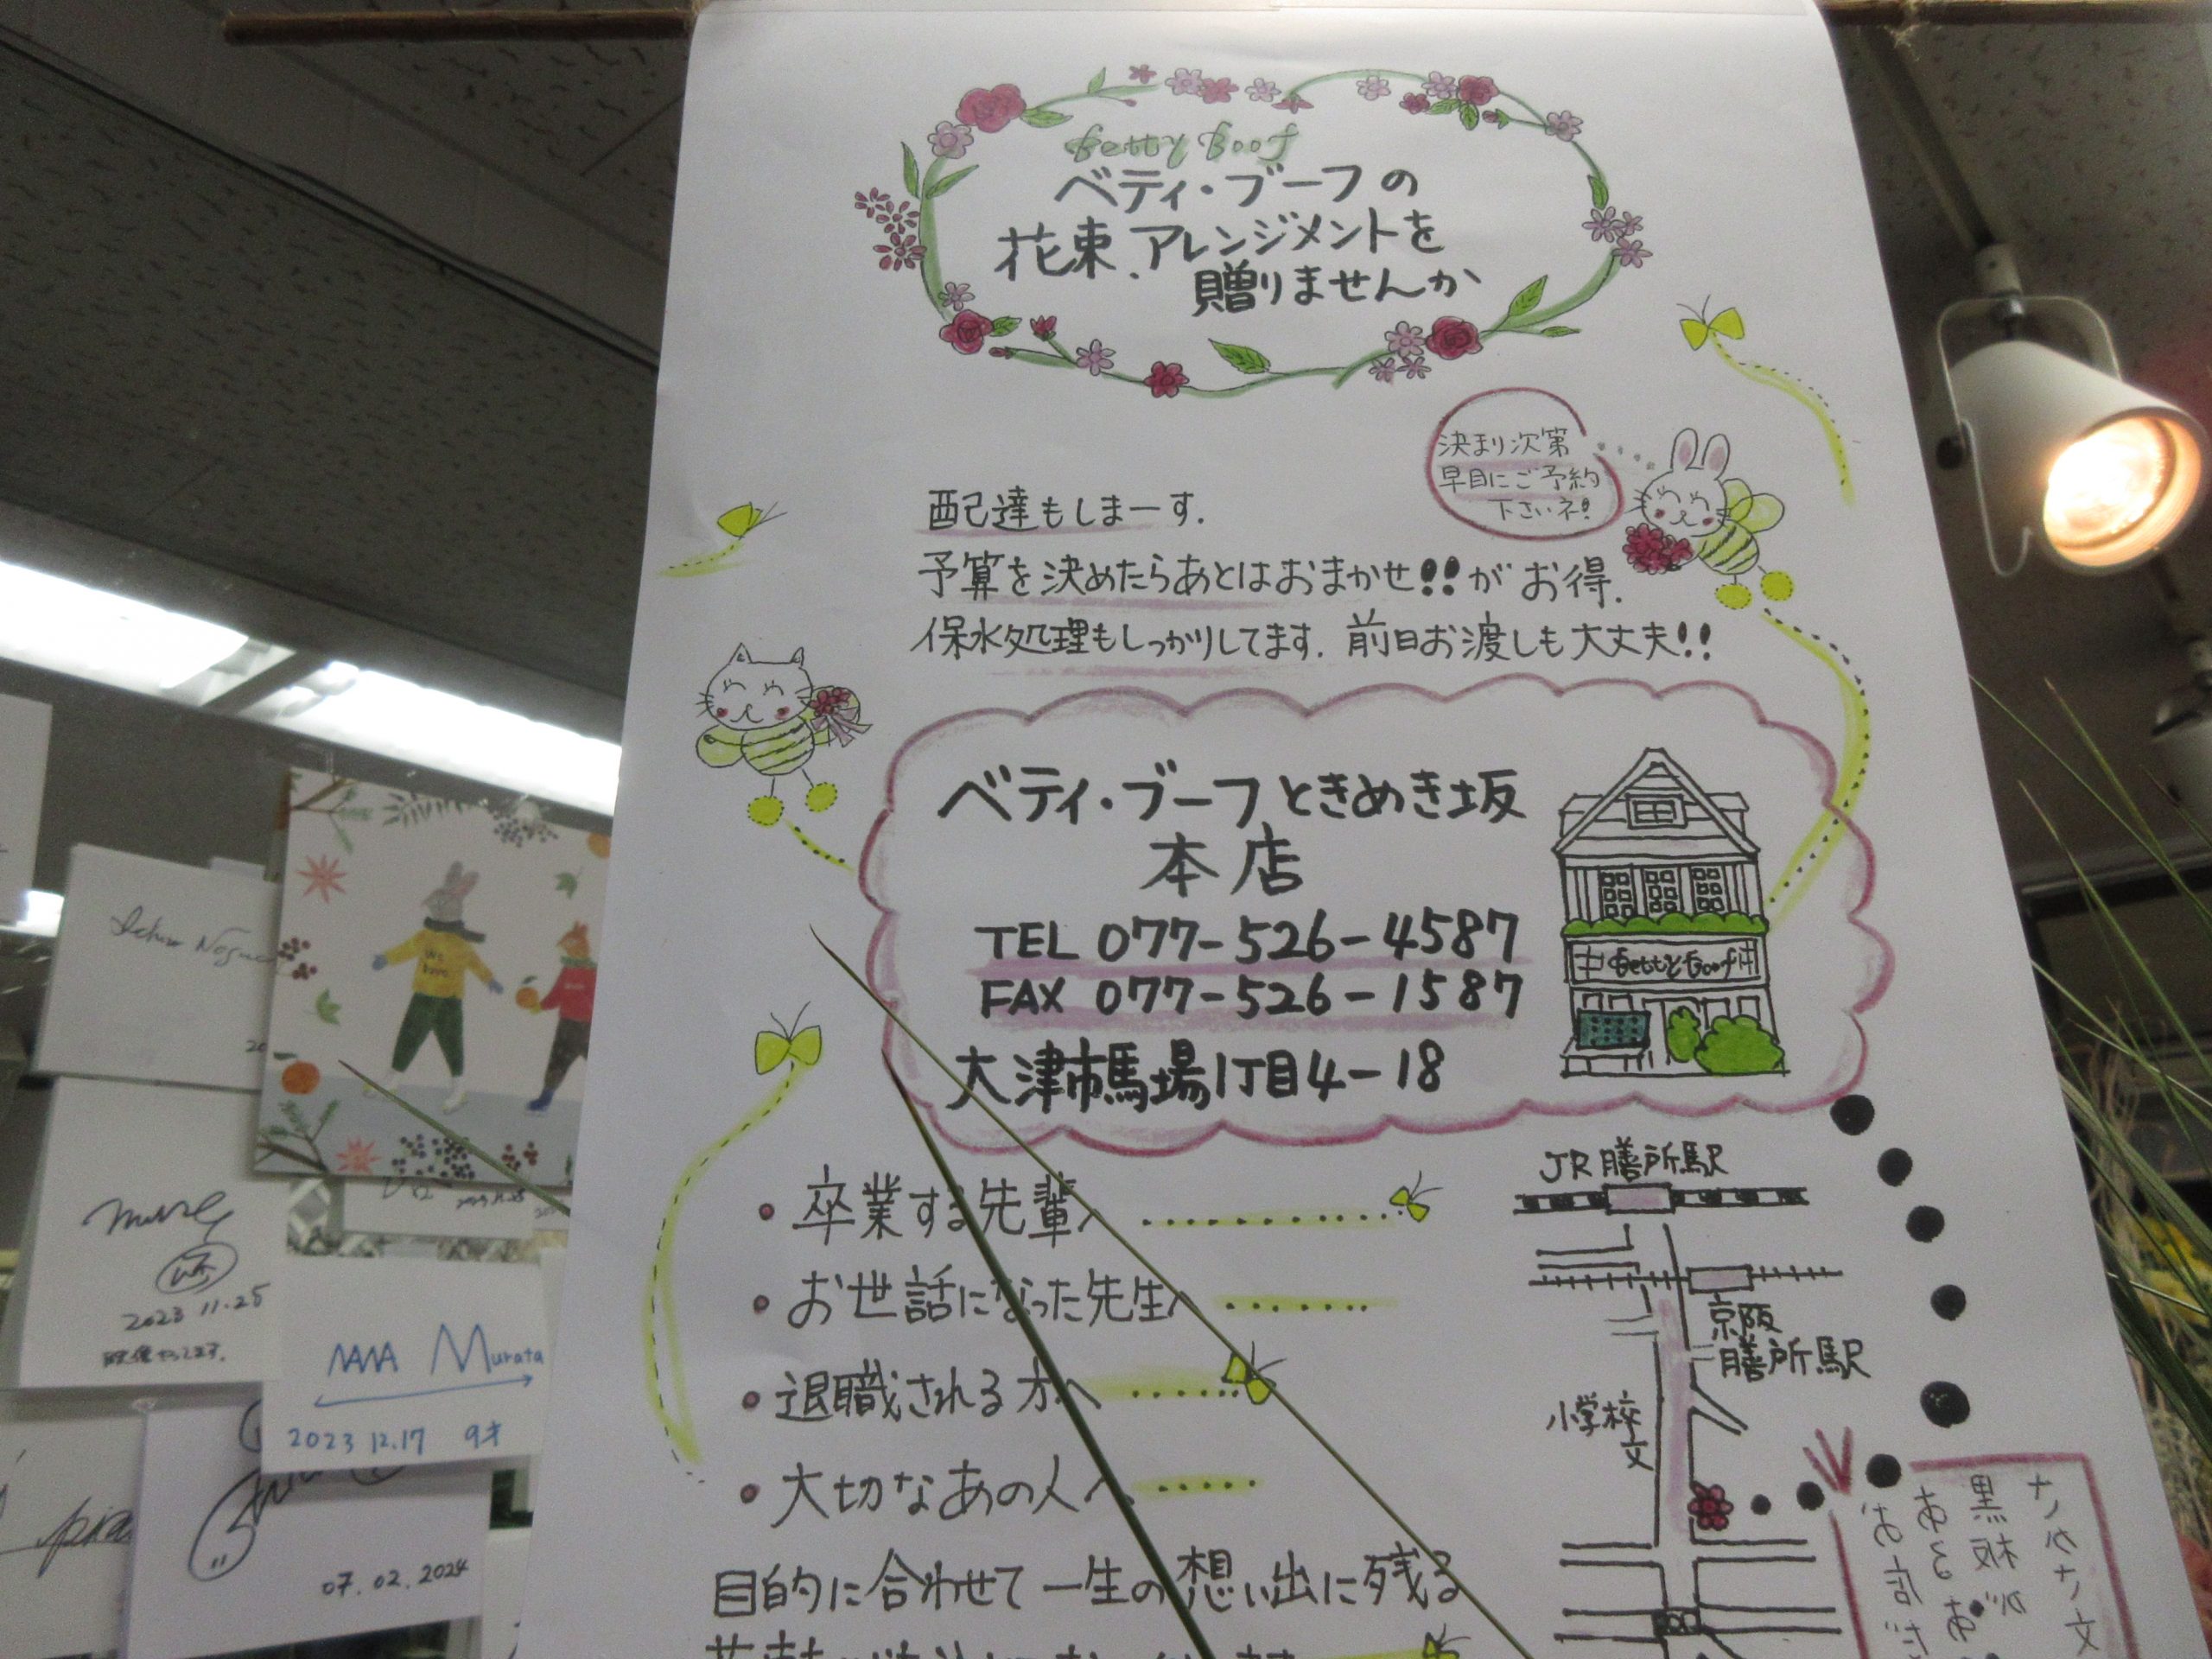 Betty Boof
ベティ・ブーフの
花束.アレンジメントを
贈りませんか
決まり次第
早目にご予約
下さいネ!
配達もしまーす.
予算を決めたらあとはおまかせ!!がお得.
保水処理もしっかりしてます.前日お渡しも大丈夫!!
ベティ・ブーフときめき坂
本店
TEL 077-526-4587
FAX 077-526-1587
大津市馬場1丁目4-18
Betty Boof
・卒業する先輩へ
・お世話になった先生へ
・退職される方へ
・大切なあの人へ
目的に合わせて一生の想い出に残る
JR膳所駅
京阪
膳所駅
小学校
文
黒板が
あるお
お店だ
We
love
Murata
2023 12.17 9才
2023 11.25
07.02.2024